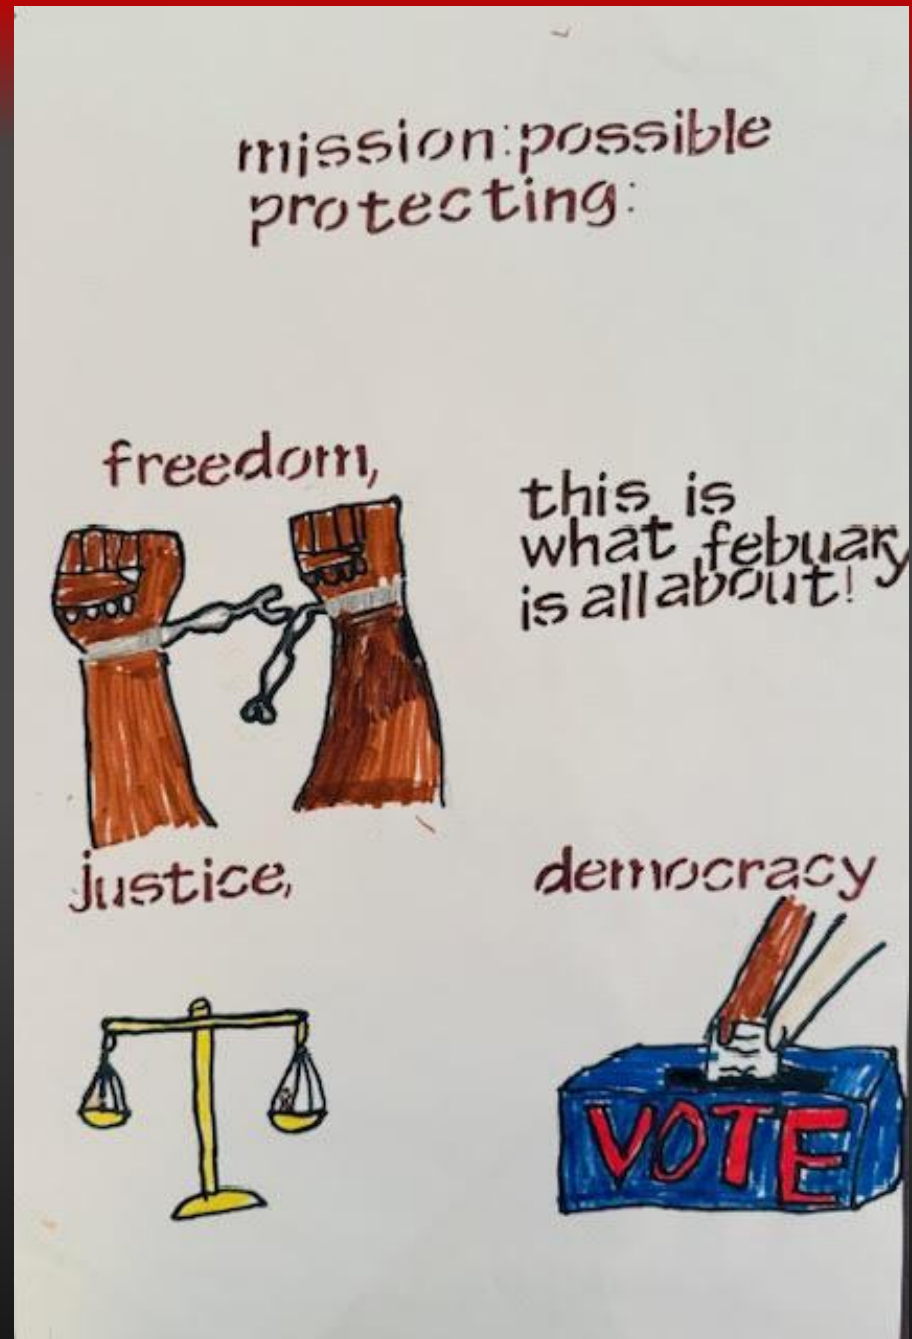 mission:possible
protecting:
freedom,
this is
what febuary
is all about!
justice,
democracy
VOTE